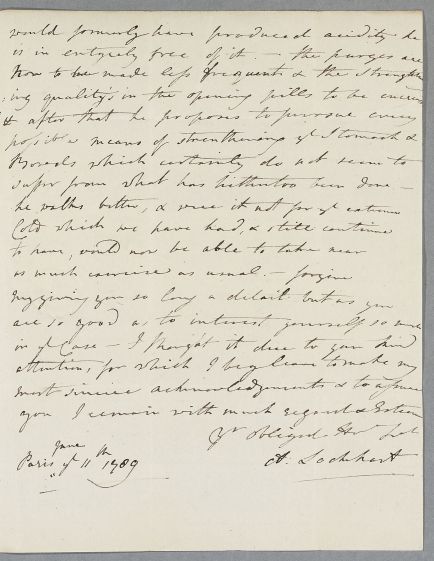 would formerly have produced acidity he
is in entirely free of it. — the purges are
now to be made less frequent & the strengthen
:ing qualitys in the opening pills to be increas
& after that he proposes to pursue every
possible means of strenthening yt Stomach &
Bowels which certainly do not seem to
suffer from what has hithertoo been done —
he walks better, & were it not for yt extreme
Cold which we have had, & still continue
to have, would now be able to take near
as much exercise as usual. — forgive
my giving you so long a detail but as you
are so good as to interest yourself so much
in yt Case — I thought it due to your kind
attention, for which I beg leave to make my
most sincere acknowledgements & to assure
you I remain with much regard & Esteem
Yr obliged Hble Sert
A: Lockhart
Paris June ye 11th 1789